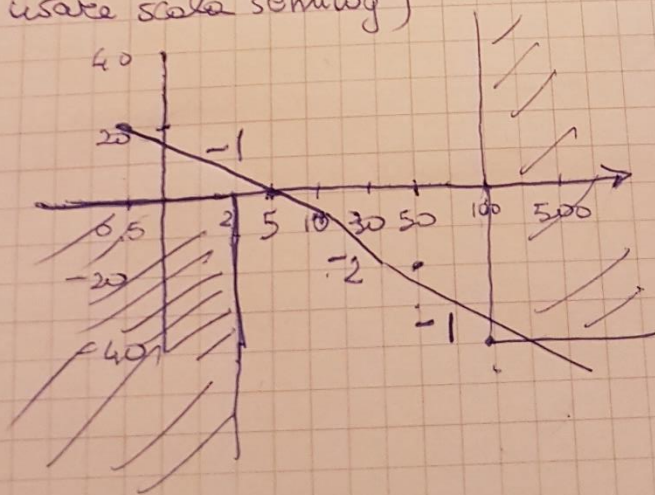 usare scala semilog)
40
20
-1
0,5 2 5 10 30 50 100 500
-20
-2
-1
-40